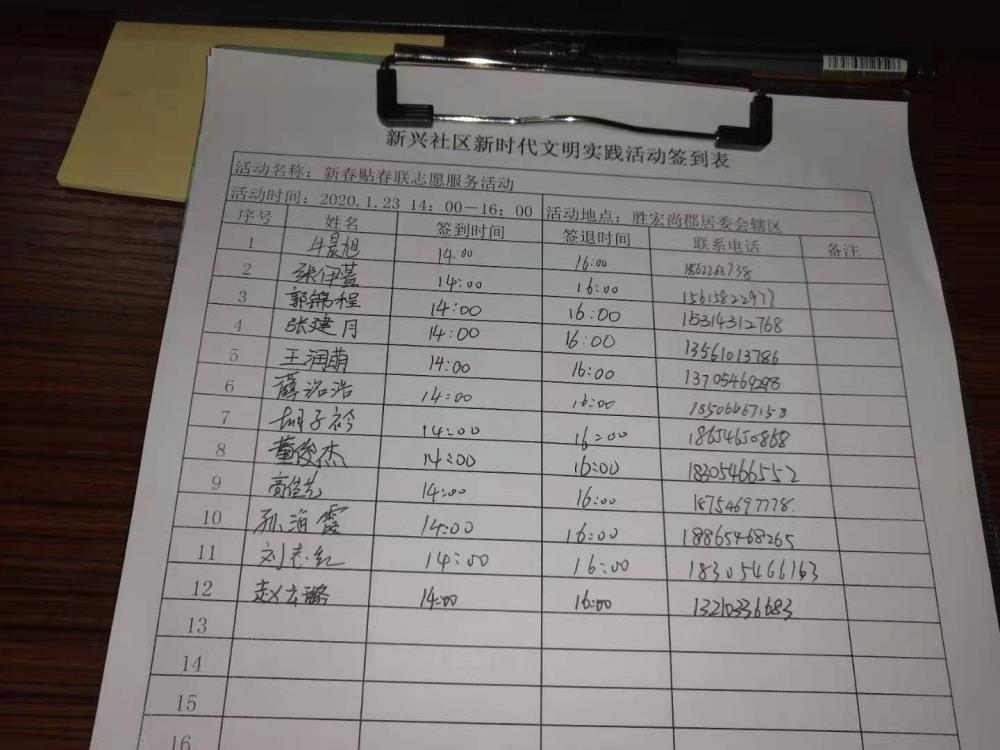 新兴社区新时代文明实践活动签到表
活动名称：新春贴春联志愿服务活动
活动时间：2020.1.23 14：00－16：00 活动地点：胜宏尚郡居委会辖区
序号 姓名 签到时间 签退时间 联系电话 备注
1 14:00 16:00
2 14:00 16:00 15615822977
3 郭锦程 14:00 16:00 15314312768
4 张建月 14:00 16:00 13561013786
5 王润萌 14:00 16:00 13705469298
6 薛洺浩 14:00 16:00 18506467158
7 胡子衿 14:00 16:00 18654650868
8 董俊杰 14:00 16:00 18305466552
9 14:00 16:00 18754697778
10 孙海霞 14:00 16:00 18865468265
11 刘志红 14:00 16:00 18305466163
12 赵云璐 14:00 16:00 13210336683
13
14
15
16